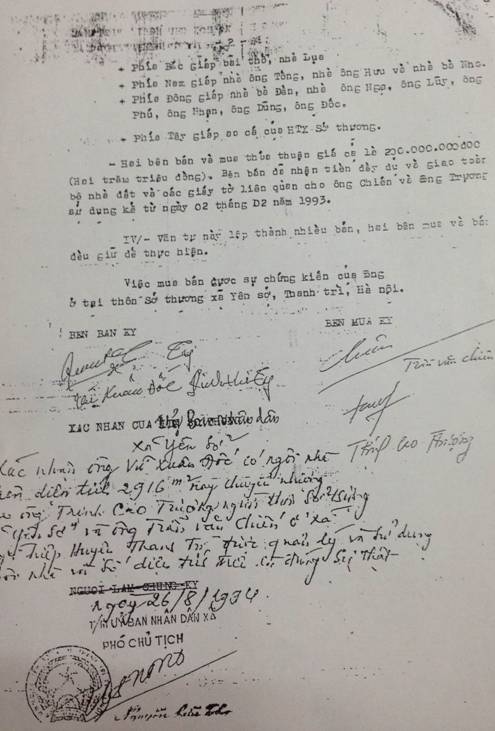 - 2 -
+ Phía Bắc giáp bãi thờ, nhà Lụa
+ Phía Nam giáp nhà ông Tông, nhà ông Hưu và nhà bà Nho.
+ Phía Đông giáp nhà bà Đàn, nhà ông Nga, ông Lũy, ông
Phú, ông Nhạn, ông Dũng, ông Đốc.
+ Phía Tây giáp ao cá của HTX Sở thượng.
- Hai bên bán và mua thỏa thuận giá cả là 200.000.000đ00
(Hai trăm triệu đồng). Bên bán đã nhận tiền đầy đủ và giao toàn
bộ nhà đất và các giấy tờ liên quan cho ông Chiến và ông Trượng
sử dụng kể từ ngày 02 tháng 02 năm 1993.
IV/- Văn tự này lập thành nhiều bản, hai bên mua và bán
đều giữ để thực hiện.
Việc mua bán được sự chứng kiến của ông
ở tại thôn Sở thượng xã Yên sở, Thanh trì, Hà nội.
BÊN BÁN KÝ BÊN MUA KÝ
Trần văn Chiến
Vũ Xuân Đốc
XÁC NHẬN CỦA
Xã Yên Sở
Xác nhận ông Vũ Xuân Đốc có ngôi nhà
trên diện tích 2916 m² nay chuyển nhượng
ông Trịnh Cao Trượng người thôn Sở thượng
Yên Sở và ông Trần văn Chiến ở xã
Hiệp Huyện Thanh Trì được quản lý và sử dụng
ngôi nhà và số diện tích trên là đúng sự thật
NGƯỜI LÀM CHỨNG KÝ
ngày 26/8/1994
T/M ỦY BAN NHÂN DÂN XÃ
PHÓ CHỦ TỊCH
Nguyễn